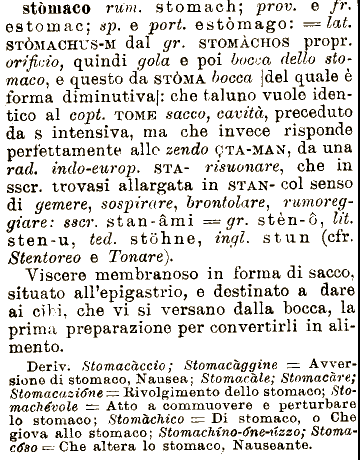 stòmaco rum. stomach; prov. e fr.
estomac; sp. e port. estòmago: = lat.
STÒMACHUS-M dal gr. STOMÀCHOS propr.
orifizio, quindi gola e poi bocca dello sto-
maco, e questo da STÒMA bocca |del quale è
forma diminutiva|: che taluno vuole iden-
tico al copt. TOME sacco, cavità, preceduto
da s intensiva, ma che invece risponde
perfettamente allo zendo ÇTA-MAN, da una
rad. indo-europ. STA- risuonare, che in
sscr. trovasi allargata in STAN- col senso
di gemere, sospirare, brontolare, rumoreg-
giare: sscr. stan-âmi = gr. stèn-ô, lit.
sten-u, ted. stöhne, ingl. stun (cfr.
Stentoreo e Tonare).
Viscere membranoso in forma di sacco,
situato all'epigastrio, e destinato a dare
ai cibi, che vi si versano dalla bocca, la
prima preparazione per convertirli in ali-
mento.
Deriv. Stomacàccio; Stomacàggine = Avver-
sione di stomaco, Nausea; Stomacàle; Stomacàre;
Stomacazióne = Rivolgimento dello stomaco; Sto-
machévole = Atto a commuovere e perturbare
lo stomaco; Stomàchico = Di stomaco, o Che
giova allo stomaco; Stomachino-óne-ùzzo; Stoma-
cóso = Che altera lo stomaco, Nauseante.